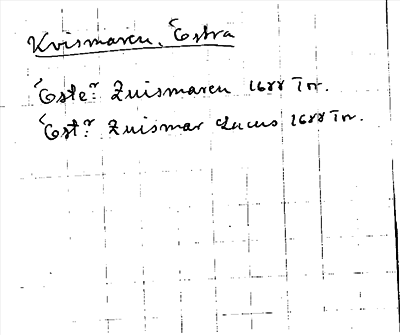 Kvismaren, Östra
Öster Quismaren 1688 Tr.
Öst.r Quismar Lacus 1688 Tr.